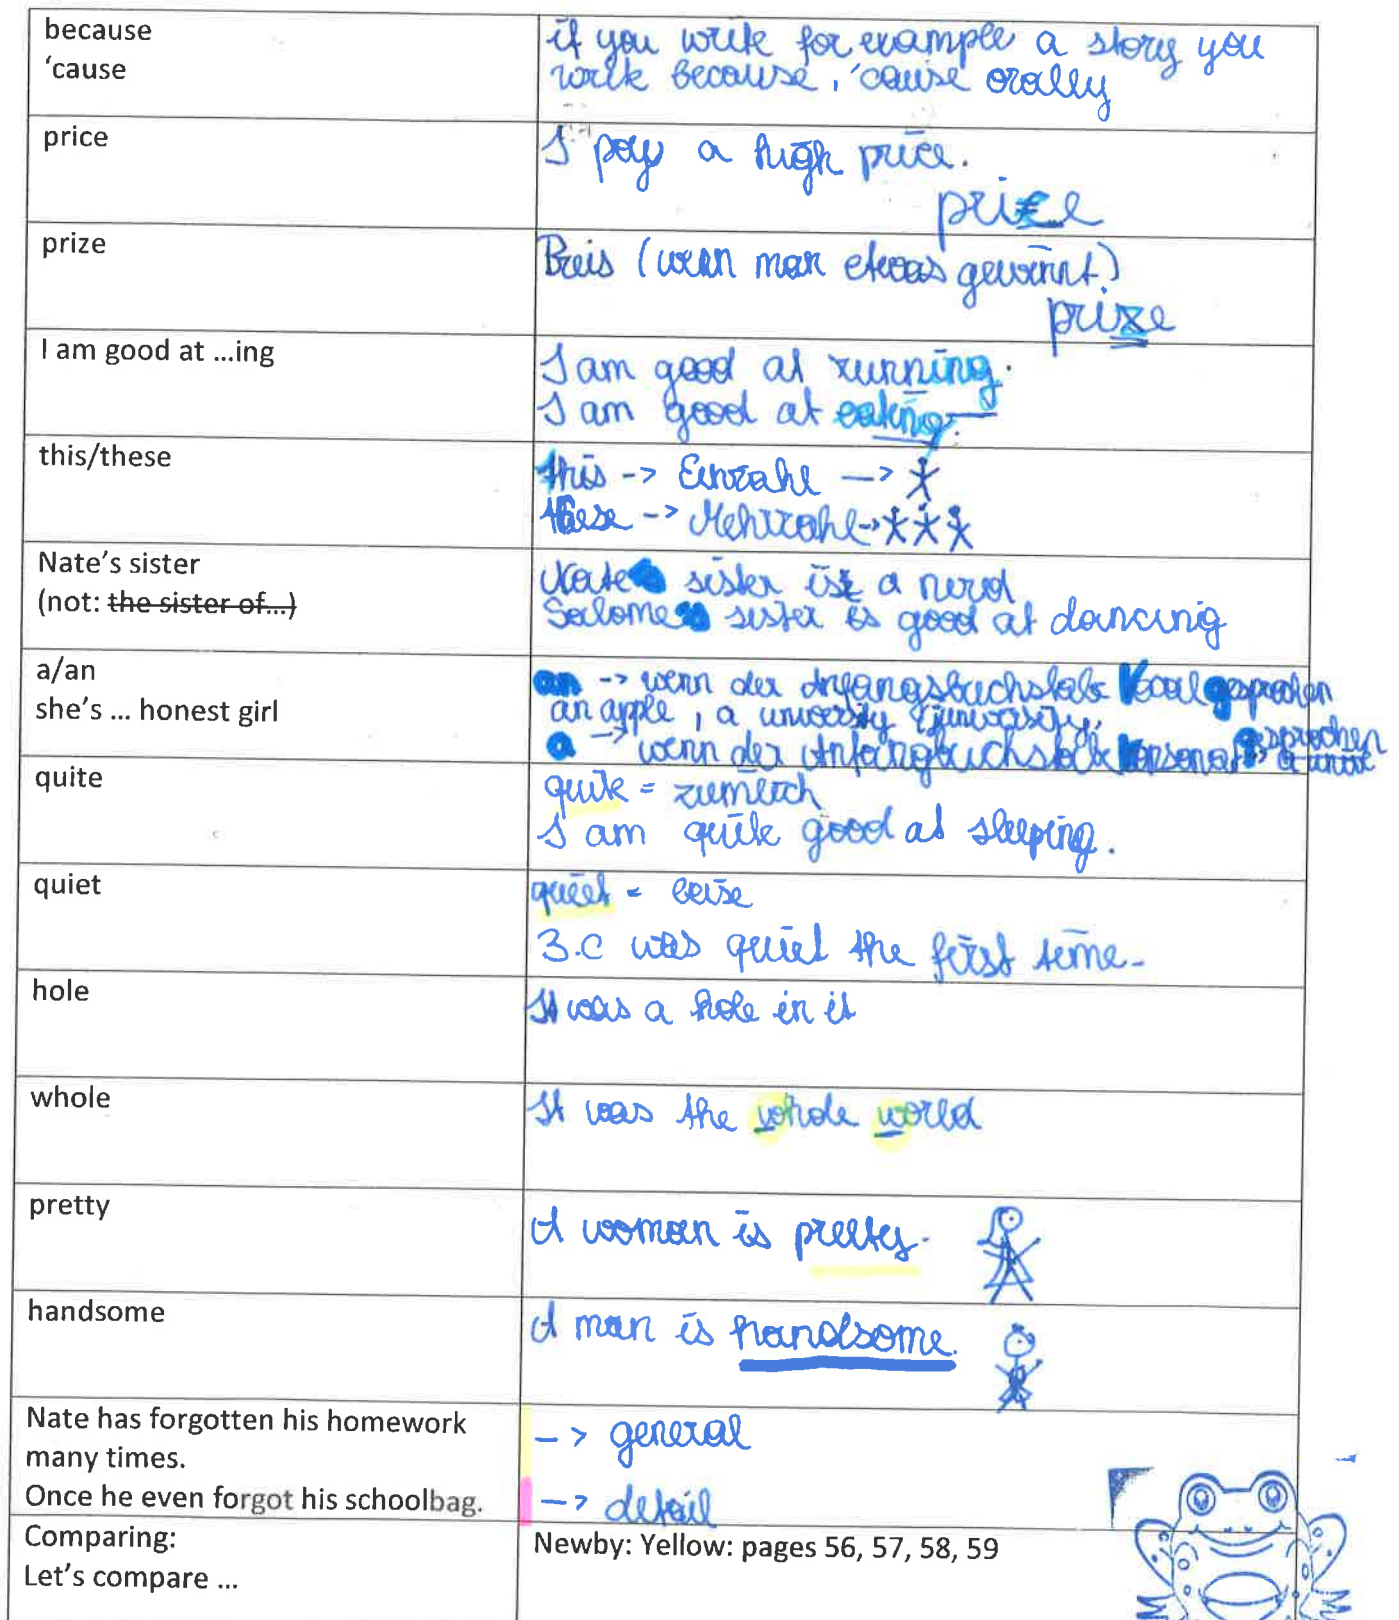 because
'cause
if you write for example a story you
write because, 'cause orally
price
I pay a high price.
price
prize
Preis (wenn man etwas gewinnt)
prize
I am good at ...ing
I am good at running.
I am good at eating.
this/these
this -> Einzahl ->
these -> Mehrzahl ->
Nate's sister
(not: the sister of...)
Nate's sister is a nerd
Salome's sister is good at dancing
a/an
she's ... honest girl
an -> wenn der Anfangsbuchstab Vocal gesprochen
an apple, a university
a -> wenn der Anfangbuchstab Konsonant gesprochen
quite
quite = ziemlich
I am quite good at sleeping.
quiet
quiet = leise
3.C was quiet the first time-
hole
It was a hole in it
whole
It was the whole world
pretty
A woman is pretty.
handsome
A man is handsome.
Nate has forgotten his homework
many times.
-> general
Once he even forgot his schoolbag.
-> detail
Comparing:
Let's compare ...
Newby: Yellow: pages 56, 57, 58, 59